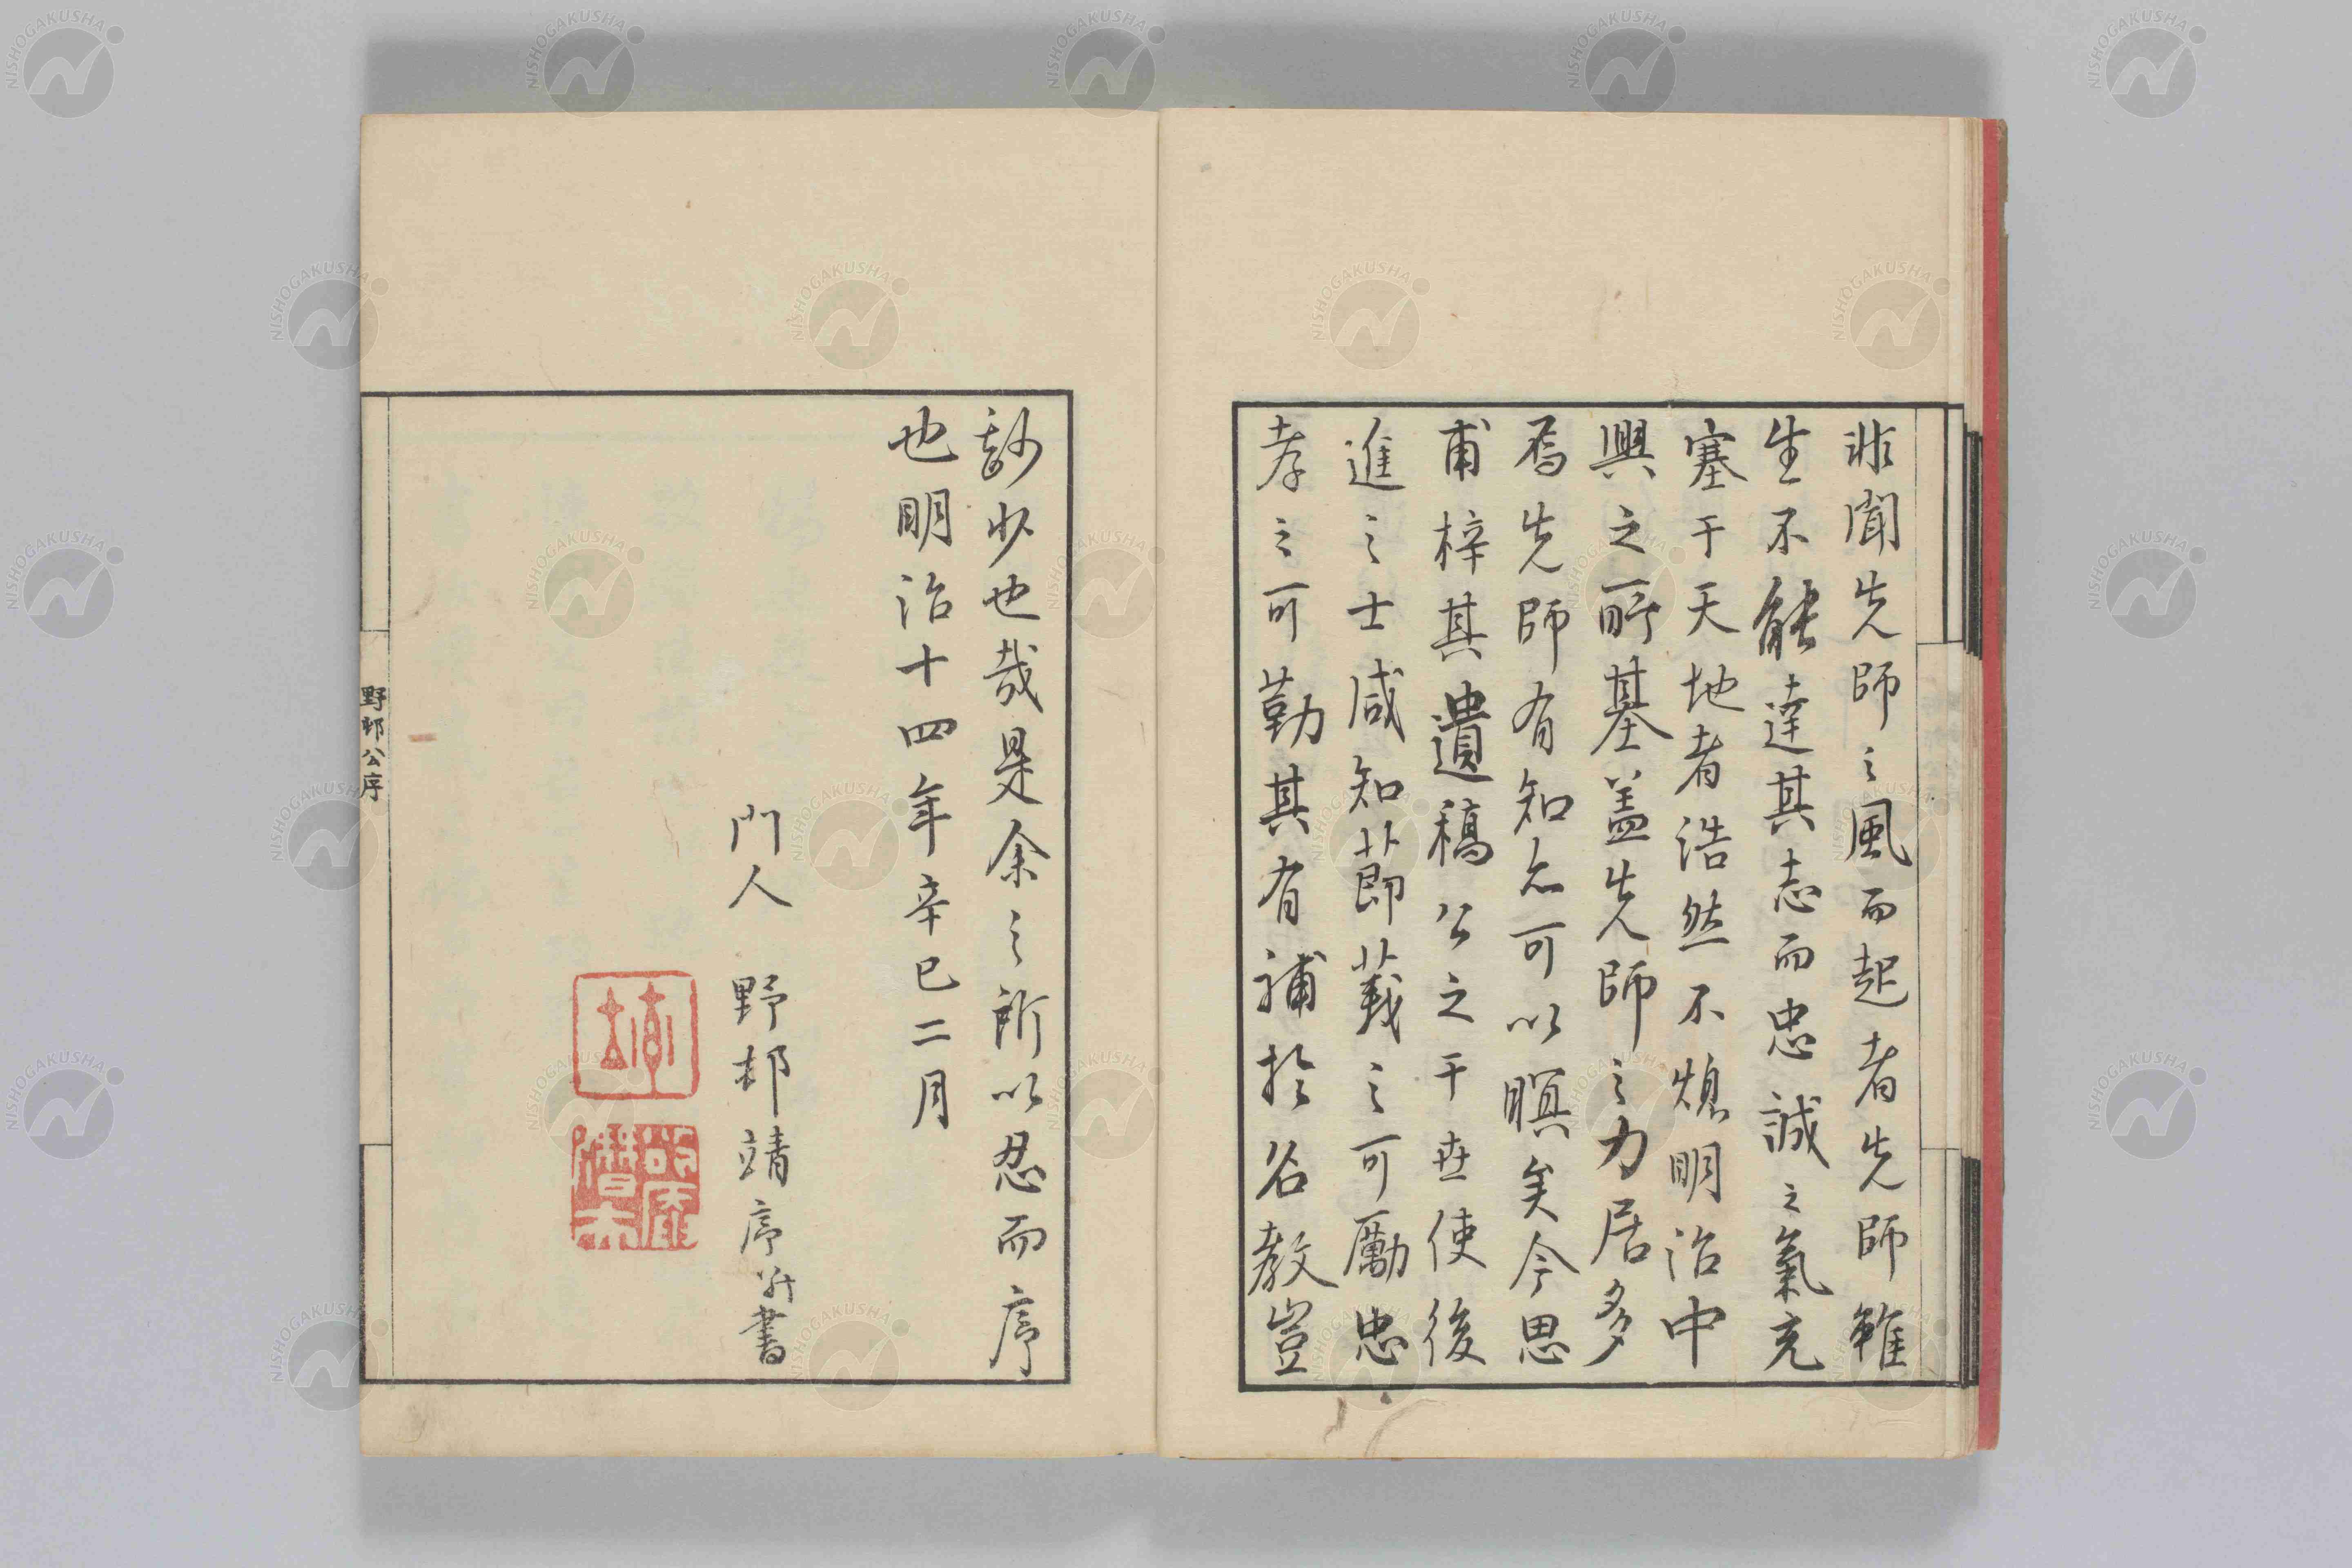 非聞先師之風而起者先師雖
生不能達其志而忠誠之氣充
塞于天地者浩然不熄明治中
興之所基蓋先師之力居多
焉先師有知亦可以瞑矣今思
甫梓其遺稿公之于世使後
進之士咸知節義之可勵忠
孝之可勤其有補於名教豈
尠少也哉是余之所以忍而序
也明治十四年辛巳二月
門人 野邨靖序并書
野邨公序
NISHOGAKUSHA